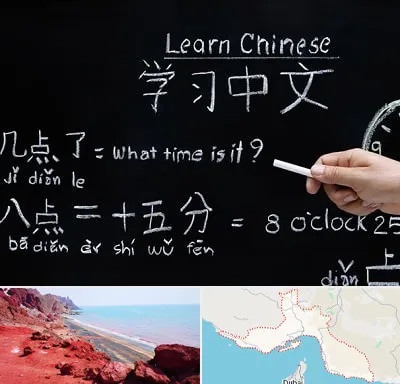 Learn Chinese
学习中文
几点了 = What time is it?
Jǐ diǎn le
八点二十五分 = 8 o'clock 25
bā diǎn èr shí wǔ fēn
9
上
diǎn
Dubai